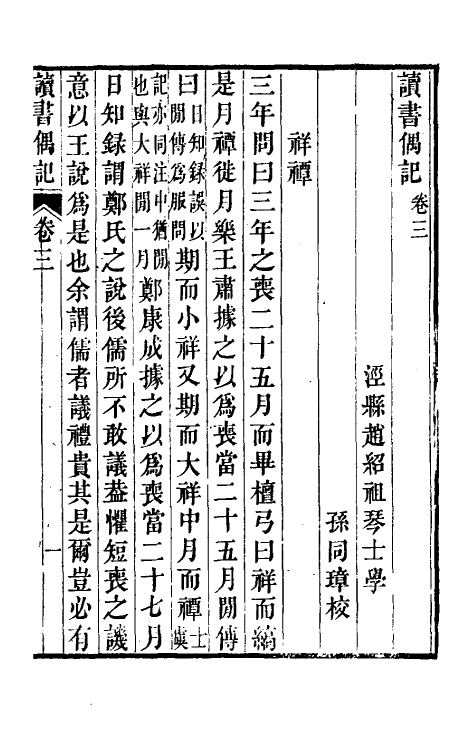 讀書偶記卷三
涇縣趙紹祖琴士學
孫同璋校
祥禫
三年問曰三年之喪二十五月而畢檀弓曰祥而縞
是月禫徙月樂王肅據之以爲喪當二十五月閒傳
曰日知録誤以閒傳爲服問期而小祥又期而大祥中月而禫士虞
記亦同注中猶閒也與大祥閒一月鄭康成據之以爲喪當二十七月
日知録謂鄭氏之說後儒所不敢議葢懼短喪之譏
意以王說爲是也余謂儒者議禮貴其是爾豈必有
讀書偶記
卷三
一